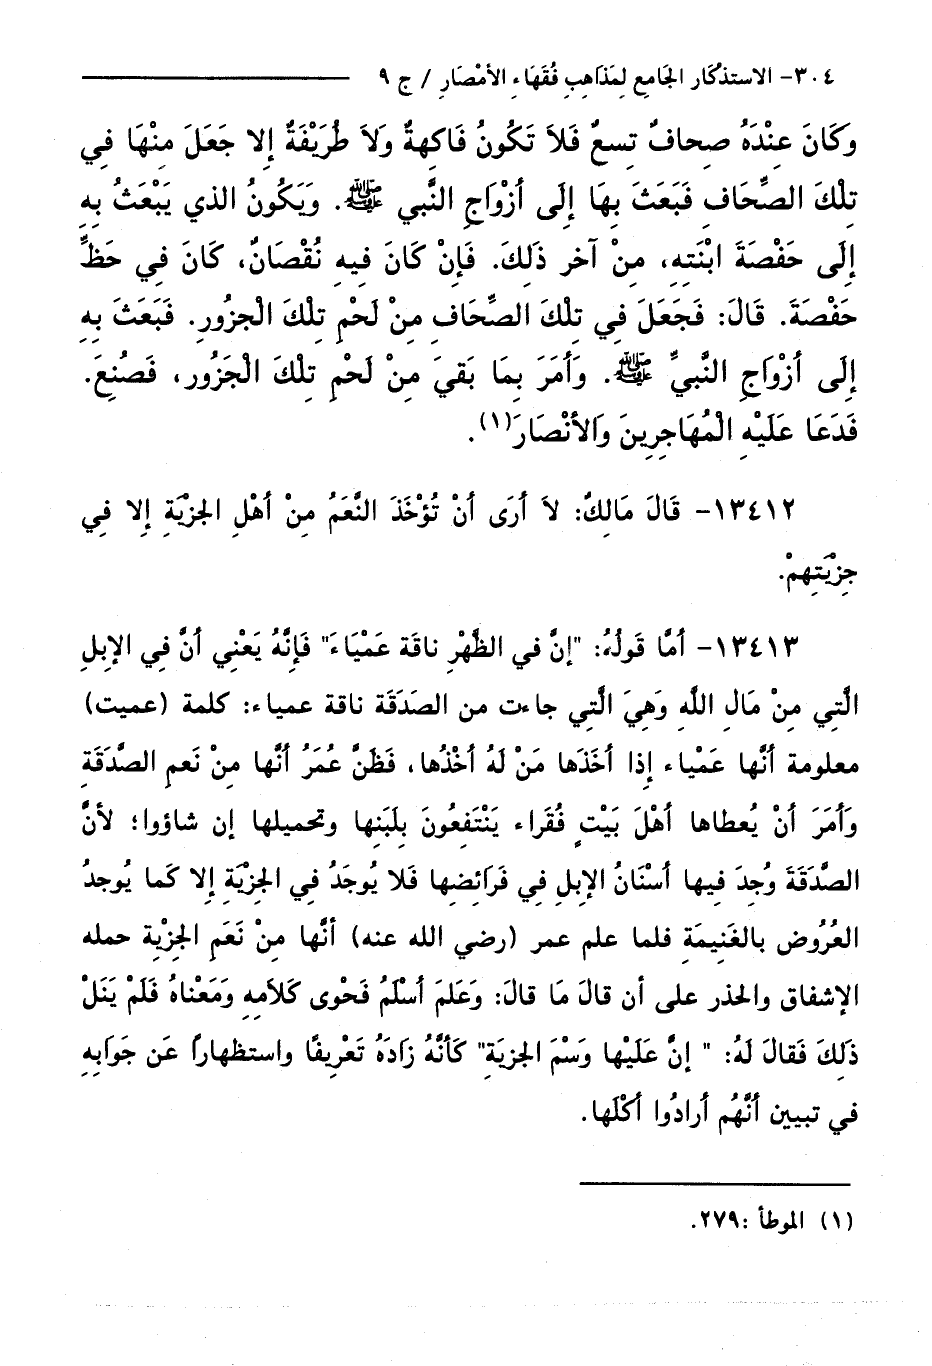 ٣٠٤- الاستذكار الجَامع لمَذاهب فُقَهَاء الأمْصَار / ج ٩
وَكَانَ عِنْدَهُ صِحافٌ تِسعٌ فَلاَ تَكُونُ فَاكِهةٌ وَلاَ طُرَيْفَةٌ إلا جَعَلَ مِنْهَا في
تِلْكَ الصِّحَافِ فَبَعَثَ بِهَا إلَى أزْوَاجِ النَّبي ﷺ. وَيَكُونُ الذي يَبْعَثُ بِهِ
إلَى حَفْصَةَ ابْنَتِهِ، مِنْ آخر ذَلِكَ. فَإنْ كَانَ فِيهِ نُقْصَانٌ، كَانَ فِي حَظِّ
حَفْصَةَ. قَالَ: فَجَعَلَ فِي تِلْكَ الصِّحَافِ مِنْ لَحْمِ تِلْكَ الْجزُورِ. فَبَعَثَ بِهِ
إلَى أزْوَاجِ النَّبيِّ ﷺ. وَأمَرَ بِمَا بَقيَ مِنْ لَحْمِ تِلْكَ الْجَزُورِ، فَصُنِعَ.
فَدَعَا عَلَيْهِ الْمُهَاجِرِينَ وَالأنْصَارَ(١).
١٣٤١٢- قَالَ مَالِكٌ: لاَ أرَى أنْ تُؤْخَذَ النَّعَمُ مِنْ أهْلِ الجزْيَةِ إلا فِي
جِزْيَتِهِمْ.
١٣٤١٣- أمَّا قَولُهُ: "إنَّ في الظَّهْرِ ناقَة عَمْيَاءَ" فَإنَّهُ يَعْنِي أنَّ في الإبلِ
الَّتِي مِنْ مَالِ اللَّهِ وَهِيَ الَّتِي جاءت من الصَدَقَة ناقة عمياء: كلمة (عميت)
معلومة أنَّها عَمْيَاء إذا أخَذَها مَنْ لَهُ أخْذُها، فَظَنَّ عُمَرُ أنَّها مِنْ نَعَمِ الصَّدَقَةِ
وَأمَرَ أنْ يُعطاها أهْلَ بَيْتٍ فُقَراء يَنْتَفِعُونَ بِلَبَنِها وتحميلها إن شاؤوا؛ لأنَّ
الصَّدَقَةَ وُجِدَ فيها أسْنَانُ الإبل في فَرَائضِها فَلا يُوجَدُ في الجِزْيَةِ إلا كَما يُوجدُ
العُرُوض بالغَنِيمَةِ فلما علم عمر (رضي الله عنه) أنَّها مِنْ نَعَمِ الجِزْيةِ حمله
الإشفاق والحذر على أن قالَ مَا قالَ: وَعَلِمَ أسْلَمُ فَحْوى كَلاَمِهِ وَمَعْناهُ فَلَمْ يَنَلْ
ذَلِكَ فَقالَ لَهُ: " إنَّ عَلَيْها وَسْمَ الجزيَة" كَأنَّهُ زَادَهُ تَعْرِيفًا واستظهاراً عَن جَوَابِهِ
في تبيين أنَّهُم أرادُوا أكْلَها.
(١) الموطأ :٢٧٩.